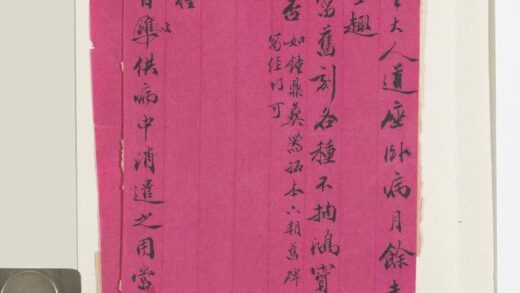 大人道座卧病月餘
趣
舊刻各種不拘鴻寶
否如鐘鼎彝器拓本六朝舊碑
寫經皆可
以
供病中消遣之用當